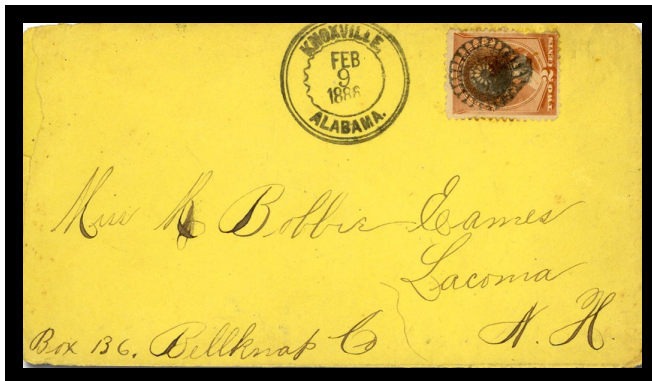 KNOXVILLE,
FEB
9
1886
ALABAMA.
TWO 2 CENTS
Miss Bobbie Eames
Laconia
N. H.
Box 136. Bellknap Co